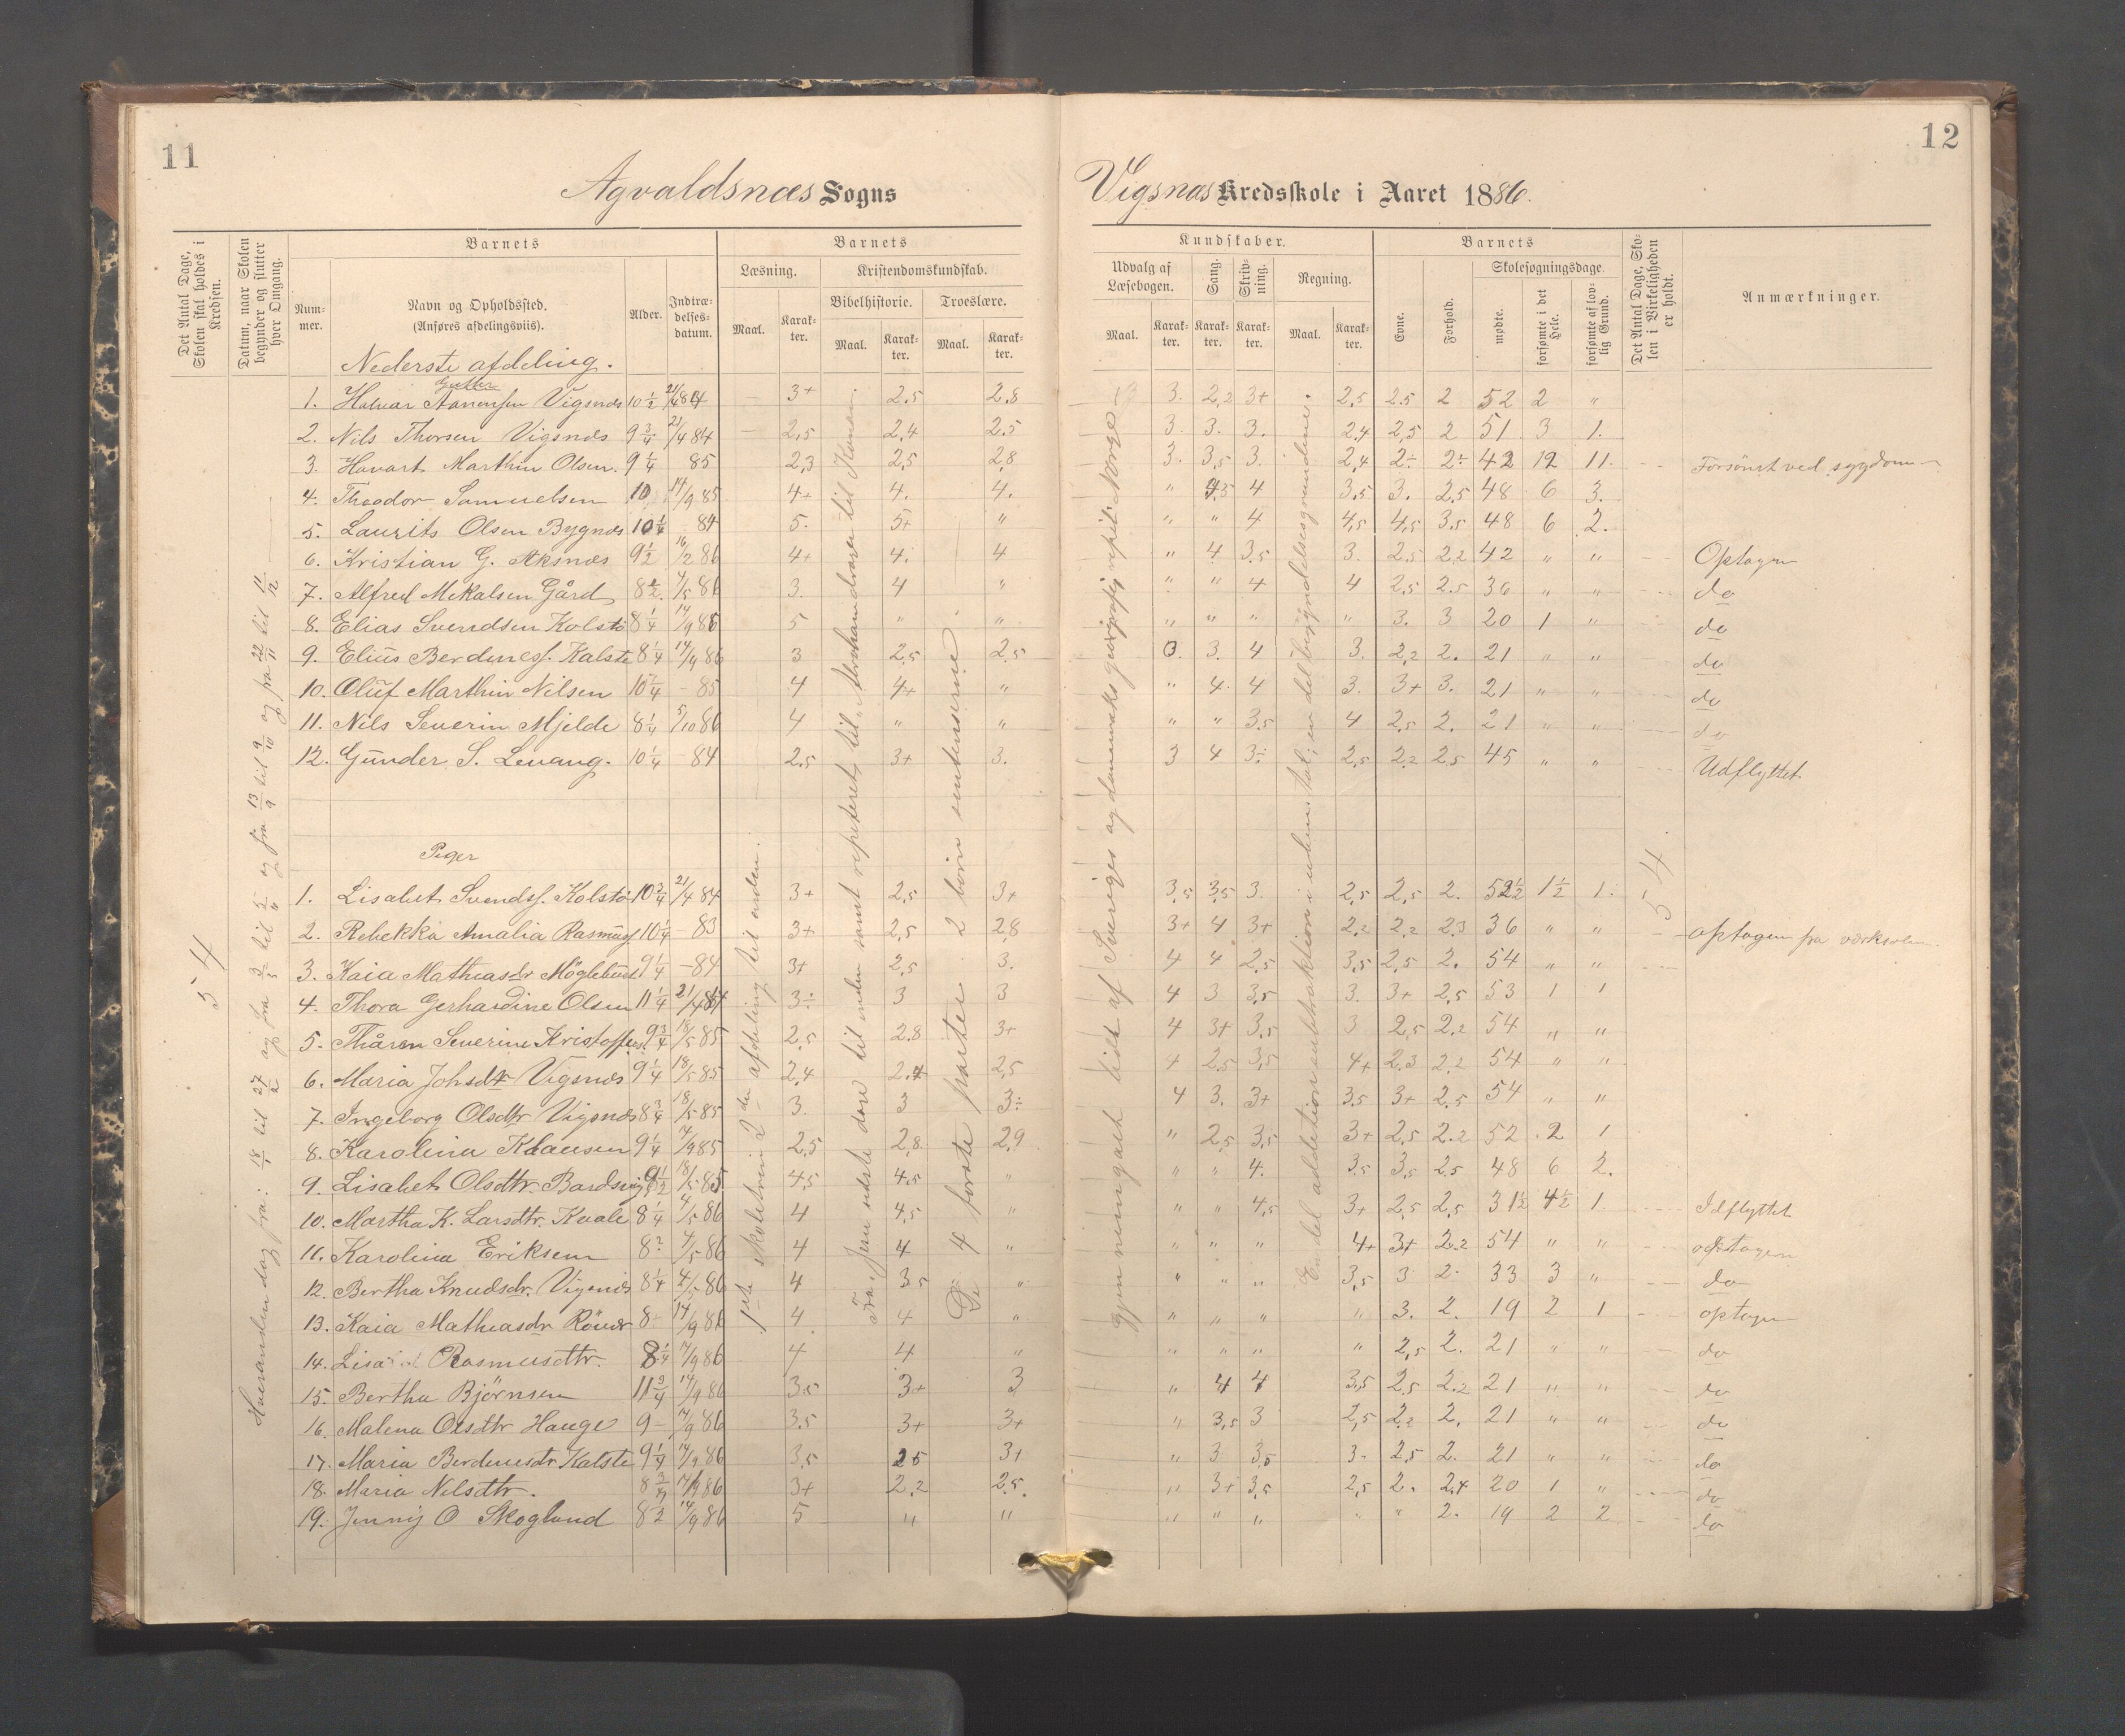 11
12
Agvaldsnæs Sogns
Vigsnæs Kredsskole i Aaret 1886.
Det Antal Dage, Skolen skal holdes i Kredsen.
Datum, naar Skolen begynder og slutter hver Omgang.
Barnets
Nummer.
Navn og Opholdssted.
(Anføres afdelingsviis).
Alder.
Indtrædelsesdatum.
Barnets
Læsning.
Maal.
Karakter.
Kristendomskundskab.
Bibelhistorie.
Maal.
Karakter.
Troeslære.
Maal.
Karakter.
Kundskaber.
Udvalg af Læsebogen.
Maal.
Karakter.
Sang.
Karakter.
Skrivning.
Karakter.
Regning.
Maal.
Karakter.
Barnets
Evne.
Forhold.
Skolesøgningsdage
mødte.
forsømte i det Hele.
forsømte af lovlig Grund.
Det Antal Dage, Skolen i Virkeligheden er holdt.
Anmærkninger.
Nederste afdeling.
Gutter
1. Halvar Aanensen Vigsnæs 10 1/2 21/4 84 3+ 2.5 2.8 3. 2,2 3+ 2,5 2.5 2 52 2 "
2. Nils Thorsen Vigsnæs 9 3/4 21/4 84 2,5 2,4 2.5 3. 3. 3. 2.4 2,5 2 51 3 1.
3. Havart Marthin Olsen. 9 1/4 85 2,3 2,5 2,8 3. 3,5 3. 2,4 2÷ 2÷ 42 12 11. Forsömt ved sygdom
4. Theodor Samuelsen 10 14/9 85 4+ 4. 4. " 4,5 4 3.5 3. 2.5 48 6 3.
5. Laurits Olsen Bygnæs 10 1/4 84 5. 5+ " " " 4 4,5 4,5 3.5 48 6 2.
6. Kristian G. Aksnæs 9 1/2 16/2 86 4+ 4. 4 " 4 3.5 3. 2.5 2.2 42 " " Optagen
7. Alfred Mikalsen Gård 8 1/2 4/5 86 3. 4 " " " 4 4 2,5 2.5 36 " " do
8. Elias Svendsen Kolstö 8 1/4 14/9 86 5 " " " " " " 3. 3 20 1 " do
9. Elius Berdines. Kalstö 8 1/4 14/9 86 3 2,5 2.5 3. 3. 4 3. 2,2 2. 21 " " do
10. Oluf Marthin Nilsen 10 1/4 - 85 4 4+ " " 4. 4 3. 3+ 3. 21 " " do
11. Nils Severin Mjelde 8 1/4 5/10 86 4 " " " " 3.5 4 2,5 2. 21 " " do
12. Gunder S. Levang. 10 1/4 - 84 2.5 3+ 3. 3 4 3÷ 2,5 2.2 2.5 45 " " Udflyttet
Piger
1. Lisabet Svends. Kolstö 10 3/4 21/4 84 3+ 2,5 3+ 3,5 3,5 3. 2,5 2,5 2. 52 1/2 1 1/2 1.
2. Rebekka Amalia Rasmuss 10 1/4 - 83 3+ 2,5 2,8 3+ 4 3+ 2.2 2,2 2.3 36 " " optagen fra værkskolen
3. Kaia Mathiasdr Möglebust 9 1/4 - 84 3+ 2,5 3. 4 4 2,5 3,5 2,5 2. 54 " "
4. Thora Gerhardine Olsen 11 1/4 21/4 84 3÷ 3 3 4 3 3,5 3. 3+ 2,5 53 1 1
5. Thåren Severine Kristoffers. 9 3/4 18/5 85 2,5 2.8 3+ 4 3+ 3,5 3 2,5 2.2 54 " "
6. Maria Johsdtr Vigsnæs 9 1/4 18/5 85 2,4 2.4 2,5 4 2,5 3,5 4+ 2.3 2.2 54 " "
7. Ingeborg Olsdtr Vigsnæs 8 3/4 18/5 85 3. 3 3÷ 4 3. 3+ 3.5 3+ 2.5 54 " "
8. Karolina Klausen 9 1/4 14/9 85 2,5 2,8 2,9 " 2,5 3,5 3+ 2,5 2.2 52 2 1
9. Lisabet Olsdtr. Bardsnig 9 1/2 18/5 85. 4,5 4,5 " " " 4. 3.5 3,5 2.5 48 6 2.
10. Martha K. Larsdtr. Kvale 8 1/4 4/5 86 4 4,5 " " " 4,5 3+ 2,5 2,5 31 1/2 4 1/2 1 Idflyttet
11. Karolina Eriksen 8 4/5 86 4 4 " " " " 4+ 3+ 2.2 54 " " optagen
12. Bertha Knudsdr. Vigsnæs 8 1/4 4/5 86 4 3.5 " " " " 3,5 3 2. 33 3 " do
13. Kaia Mathiasdr Röver 8 14/9 86 4 4 " " " " " 3. 2. 19 2 1 optagen
14. Lisabet Rasmusdtr. 8 1/4 14/9 86 4 4 " " " " " 2,5 2. 21 " " do
15. Bertha Björnsen 11 3/4 14/9 86 3.5 3+ 3 " 4 4 3,5 2.5 2.2 21 " " do
16. Malena Olsdtr Hauge 9 - 14/9 86 3.5 3+ 3+ " 3,5 3 2,5 2.2 2. 21 " " do
17. Maria Berdinesdr Kalstö 9 1/4 14/9 86 3,5 2.5 3+ " 3 3,5 3. 2,5 2. 21 " " do
18. Maria Nilsdtr. 8 3/4 14/9 86 3+ 2,2 2,5. " 3+ 3,5 2,5 2. 2.4 20 1 " do
19. Jenny O Skoglund 8 1/2 14/9 86 5 " " " " " " " 2. 19 2 2 do
54
Hveranden dag fra: 18/1 til 27/2 og fra 3/5 til og fra 13/9 til 9/10 og fra 22/11 til 11/12
1ste skoletrin 2den afdeling til enden.
Fra Jesu sidste dage til enden samt repeteret til "Abrahams
De 4 første parter 2 børn sentenserne
Gjennemgaaet lidt af Sveriges og Danmarks geografi, repet. Norge
Endel addition subtraktion i uben. tal; en del begyndelsesgrundene.
54